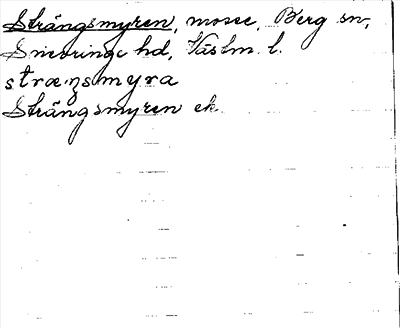 Strängsmyren, mosse, Berg sn,
Snevringe hd, Västm. l.
stræŋsmyra
Strängsmyren ek.